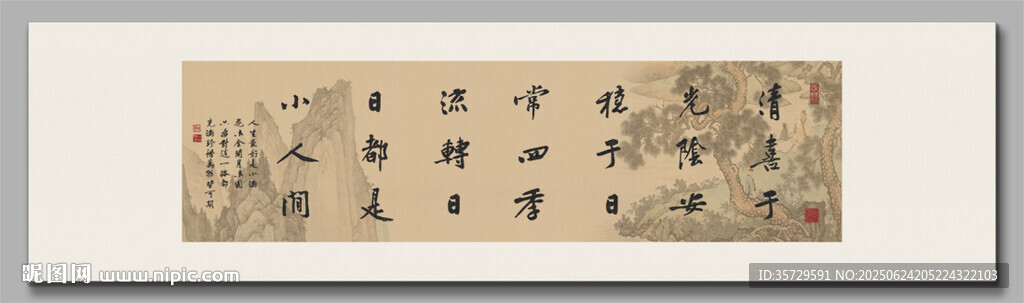 清喜于
光陰安
稳于日
常四季
流轉日
日都是
小人間
人生最好是小滿
花未全開月未圓
只要對這一路都
充滿珍惜萬物皆可期
昵图网 www.nipic.com
ID:35729591 NO:20250624205224322103